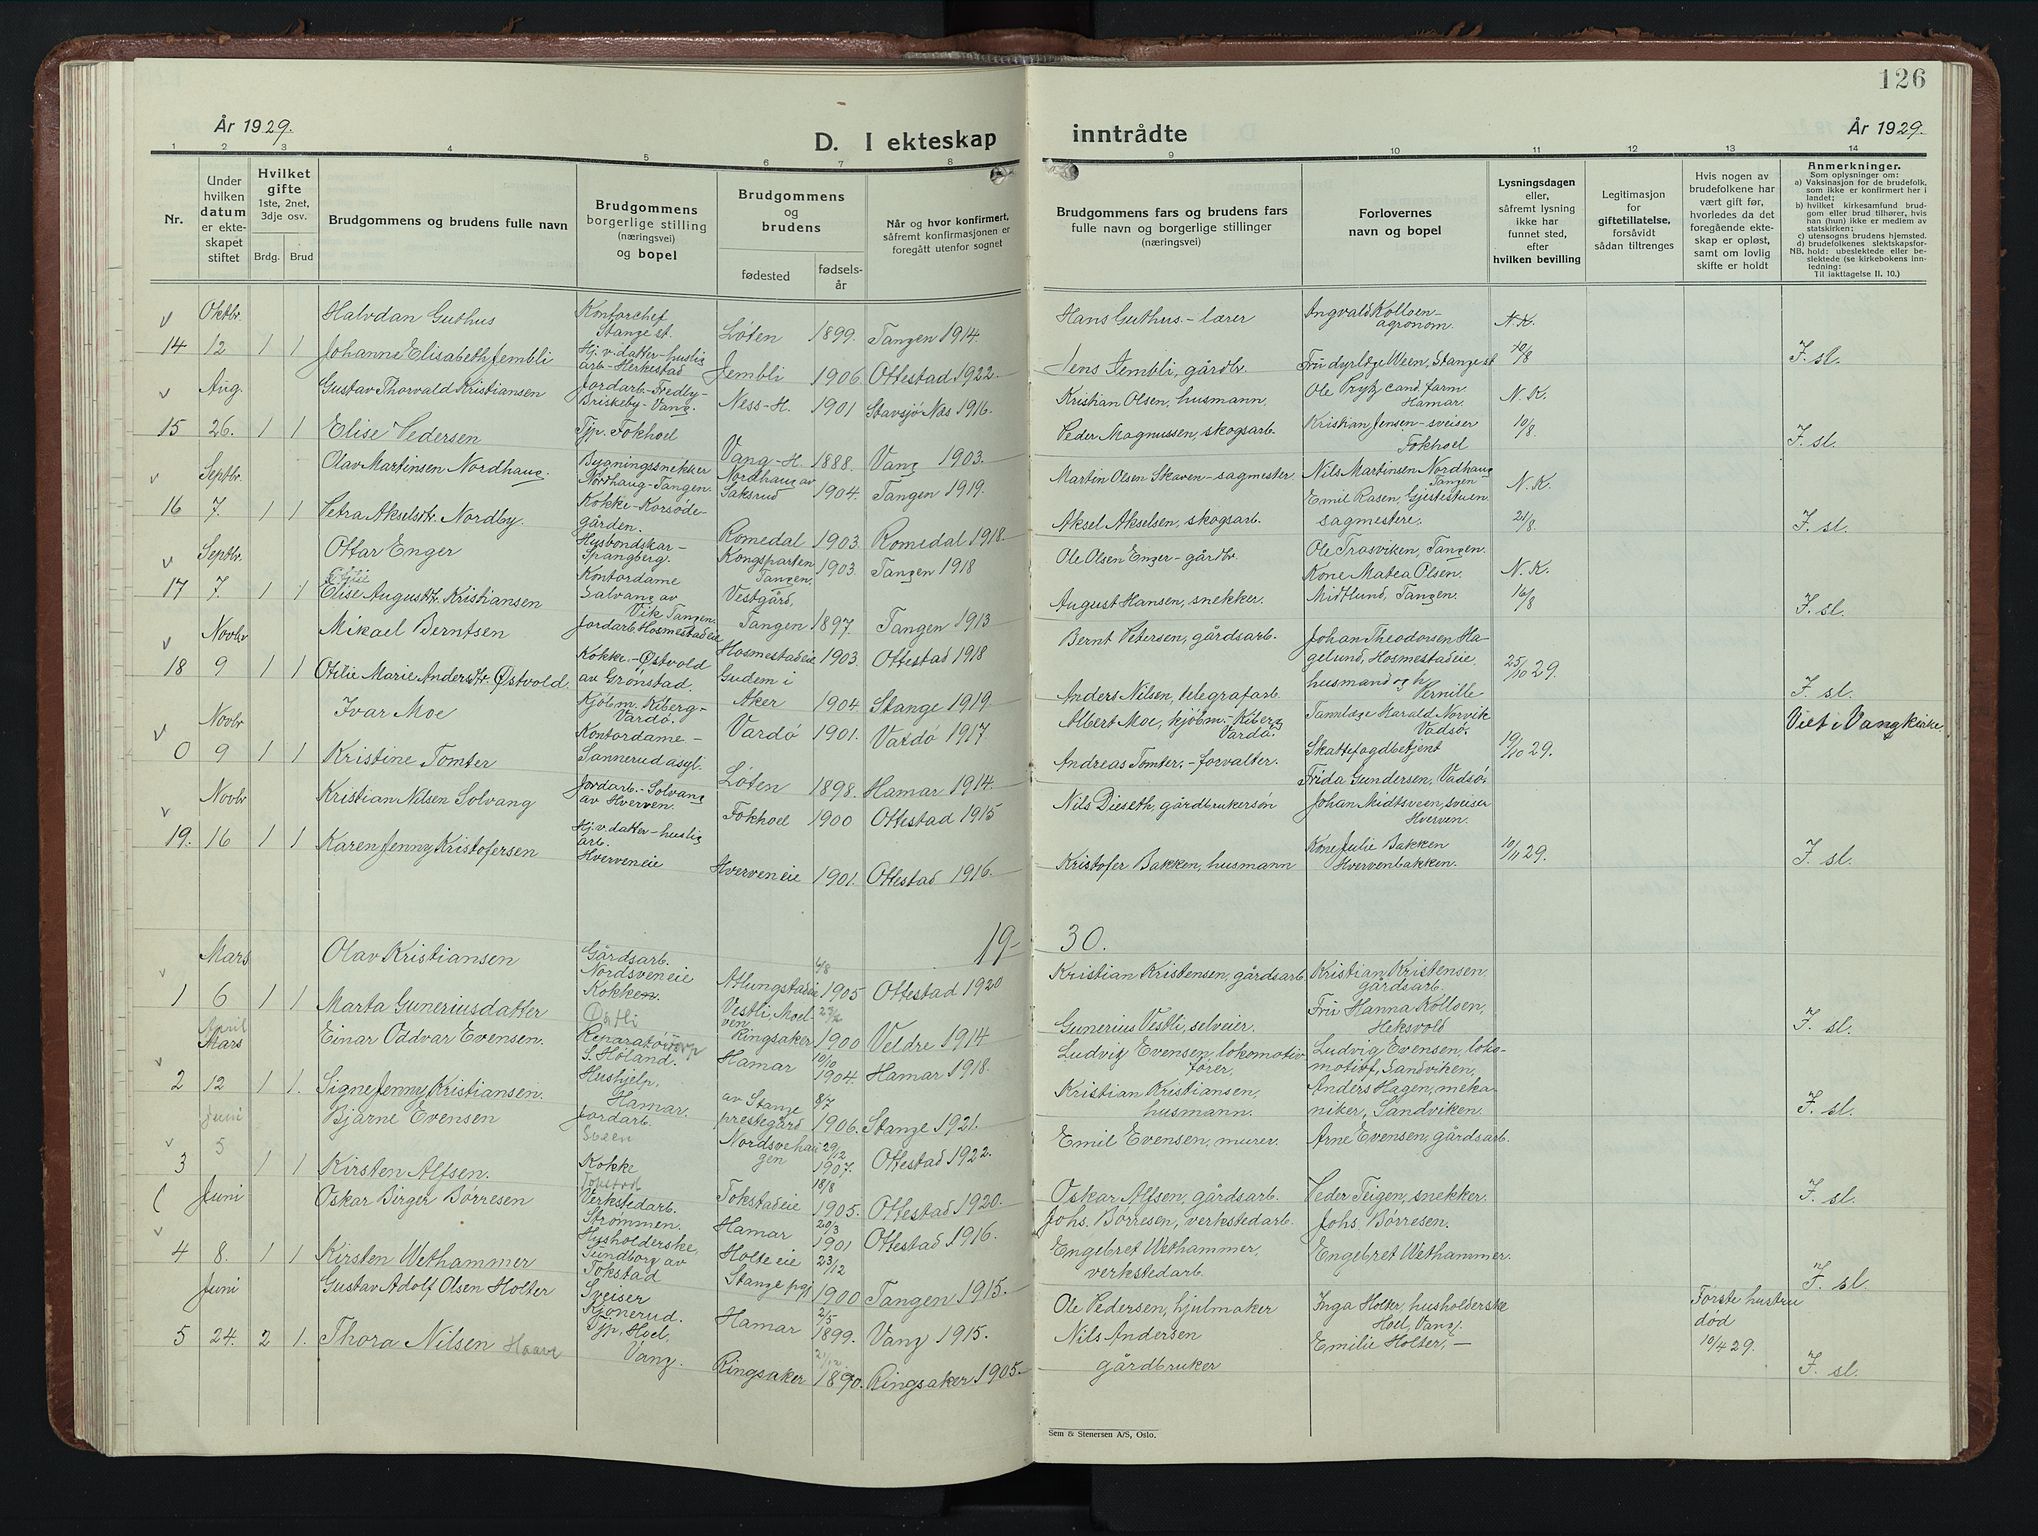 126
År 1929.
D. I ekteskap
inntrådte
År 1929.
1 2 3 4 5 6 7 8 9 10 11 12 13 14
Nr.
Under hvilken datum er ekte-skapet stiftet
Hvilket gifte 1ste, 2net, 3dje osv.
Brdg. Brud
Brudgommens og brudens fulle navn
Brudgommens borgerlige stilling (næringsvei) og bopel
Brudgommens og brudens
fødested
fødsels-år
Når og hvor konfirmert, såfremt konfirmasjonen er foregått utenfor sognet
Brudgommens fars og brudens fars fulle navn og borgerlige stillinger (næringsvei)
Forlovernes navn og bopel
Lysningsdagen eller, såfremt lysning ikke har funnet sted, efter hvilken bevilling
Legitimasjon for giftetillatelse, forsåvidt sådan tiltrenges
Hvis nogen av brudefolkene har vært gift før, hvorledes da det foregående ekte-skap er opløst, samt om lovlig skifte er holdt
Anmerkninger.
Som oplysninger om:
a) Vaksinasjon for de brudefolk, som ikke er konfirmert her i landet;
b) hvilket kirkesamfund brud-gom eller brud tilhører, hvis han (hun) ikke er medlem av statskirken;
c) utensogns brudens hjemsted.
d) brudefolkenes slektskapsfor-
NB. hold: ubeslektede eller be-slektede (se kirkebokens inn-ledning:
Til iakttagelse II. 10.)
Oktbr. Halvdan Guthus Kontorchef Stange st. Løten 1899. Tangen 1914. Hans Guthus - lærer Ingvald Kolloen - agronom. N. K.
14 12 1 1 Johanne Elisabeth Jembli Hj. v. datter - huslig arb - Herkestad Jembli 1906. Ottestad 1922. Jens Jembli, gårdbr. Fru dyrlæge Ween, Stange st 10/8 F. sl.
Aug. Gustav Thorvald Kristiansen Jordarb - Fredby - Briskeby - Vang. Ness-H. 1901 Stavsjø Næs 1916. Kristian Olsen, husmann. Ole Prytz cand. farm Hamar. N. K.
15 26. 1 1 Elise Pedersen Tjp. Fokhoel Vang-H. 1888. Vang 1903. Peder Magnussen, skogsarb. Kristian Jensen - sveiser Fokhoel 10/8. F. sl.
Septbr. Olav Martinsen Nordhaug Bygningssnekker Nordhaug - Tangen. Nordhaug av Saksrud 1904. Tangen 1919. Martin Olsen Skaven - sagmester Nils Martinsen Nordhaug Tangen N. K.
16 7. 1 1 Petra Akselsdtr. Nordby. Kokke - Korsøde-gården. Romedal 1903. Romedal 1918. Aksel Akselsen, skogsarb. Emil Rasen, Gjestestuen sagmestere. 21/8. F. sl.
Septbr. Ottar Enger Husbondskar - Spangberg. Kongsparten Tangen. 1903. Tangen 1918 Ole Olsen Enger - gårdbr. Ole Trasviken, Tangen. N. K.
17 7. 1 1 Elise Augustdtr. Kristiansen Kontordame Salvang av Vik Tangen. Vestgård, Tangen 1897. Tangen 1913 August Hansen, snekker. Kone Matea Olsen. Midtlund, Tangen. 16/8 F. sl.
Novbr Mikael Berntsen Jordarb. Hosmestadeie Hosmestadeie 1903. Ottestad 1918 Bernt Petersen, gårdsarb. Johan Theodorsen Ha-gelund, Hosmestadeie. 25/10 29.
18 9 1 1 Otilie Marie Andersdtr. Østvold. Kokke - Østvold av Grønstad. Gudem i Aker 1904 Stange 1919 Anders Nilsen, telegrafarb. husmand og h Pernille F. sl.
Novbr Ivar Moe Kjøbm. Kiberg - Vardø. Vardø 1901. Vardø 1917. Albert Moe, kjøbm - Kiberg Vardø. Tannlæge Harald Norvik Vadsø. Viet i Vang kirke
0 9 1 1 Kristine Tomter Kontordame - Sannerud asyl. Løten 1898. Hamar 1914. Andreas Tomter - forvalter. Skattefogdbetjent Frida Gundersen, Vadsø. 19/10 29.
Novbr Kristian Nilsen Solvang Jordarb. - Solvang av Hverven. Fokhoel 1900 Ottestad 1915 Nils Dieseth, gårdbrukersøn Johan Midtsveen, sveiser Hverven.
19. 16 1 1 Karen Jenny Kristofersen Hj. v. datter - huslig arb. Hverveneie Hverveneie 1901. Ottestad 1916. Kristofer Bakken, husmann Kone Julie Bakken Hvervenbakken. 10/11 29. F. sl.
19-30.
Mars Olav Kristiansen Gårdsarb. Nordsveneie Atlungstadeie 4/8 1905 Ottestad 1920 Kristian Kristensen, gårdsarb. Kristian Kristensen. gårdsarb.
1 6 1 1 Marta Guneriusdatter Kokken. Østli Vestli, Moel-ven Ringsaker 1900 Veldre 1914 Gunerius Vestli, selveier. Fru Hanna Kolloen, Heksvold F. sl.
April Mars Einar Oddvar Evensen. Reparatør S. Høland. Hamar 10/10 1904. Hamar 1918. Ludvig Evensen, lokomotiv fører, Ludvig Evensen, loko-motivf, Sandviken,
2 12 1 1. Signe Jenny Kristiansen. Hushjelp, Hamar. av Stange prestegård 8/7 1906. Stange 1921. Kristian Kristiansen, husmann. Anders Hagen, meka-niker, Sandviken. F. sl.
Juni Bjarne Evensen Jordarb. Sveen Nordsvehau gen 29/12 1907. Ottestad 1922. Emil Evensen, murer. Arne Evensen, gårdsarb.
3 5 1 1 Kirsten Alfsen. Kokke Tokstad Tokstadeie 18/8 1905. Ottestad 1920. Oskar Alfsen, gårdsarb. Peder Teigen, snekker. F. sl.
Juni Oskar Birger Børresen Verkstedarb. Strommen. Hamar 20/3 1901 Ottestad 1916. Johs. Børresen, verkstedarb. Johs. Børresen.
4 8. 1 1 Kirsten Wethammer Husholderske, Sundborg av Tokstad Holteeie Stange pgj 23/12 1900 Tangen 1915. Engebret Wethammer, verkstedarb. Engebret Wethammer. F. sl.
Juni Gustav Adolf Olsen Holter Sveiser Kjonerud. Hamar 2/5 1899. Vang 1915. Ole Pedersen, hjulmaker Inga Holter, husholderske Hoel, Vang. Første hustru død 10/4 29.
5 24. 2 1. Thora Nilsen Haave Tjp. Hoel, Vang. Ringsaker 1890. Ringsaker 1905. Nils Andersen gårdbruker Emilie Holter, - F. sl.
Sem & Stenersen A/S, Oslo.